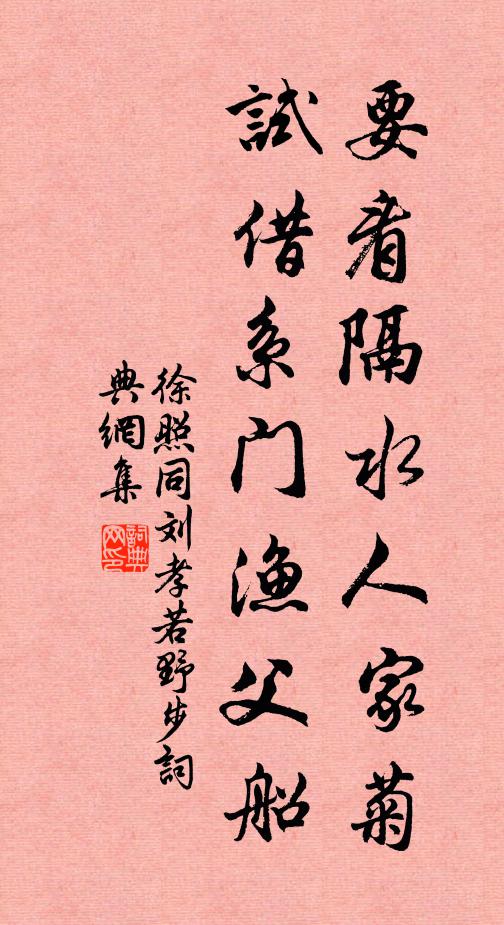 要看隔水人家菊
試借系門漁父船
徐照同刘孝若野步詞
典網集
詞典
网印